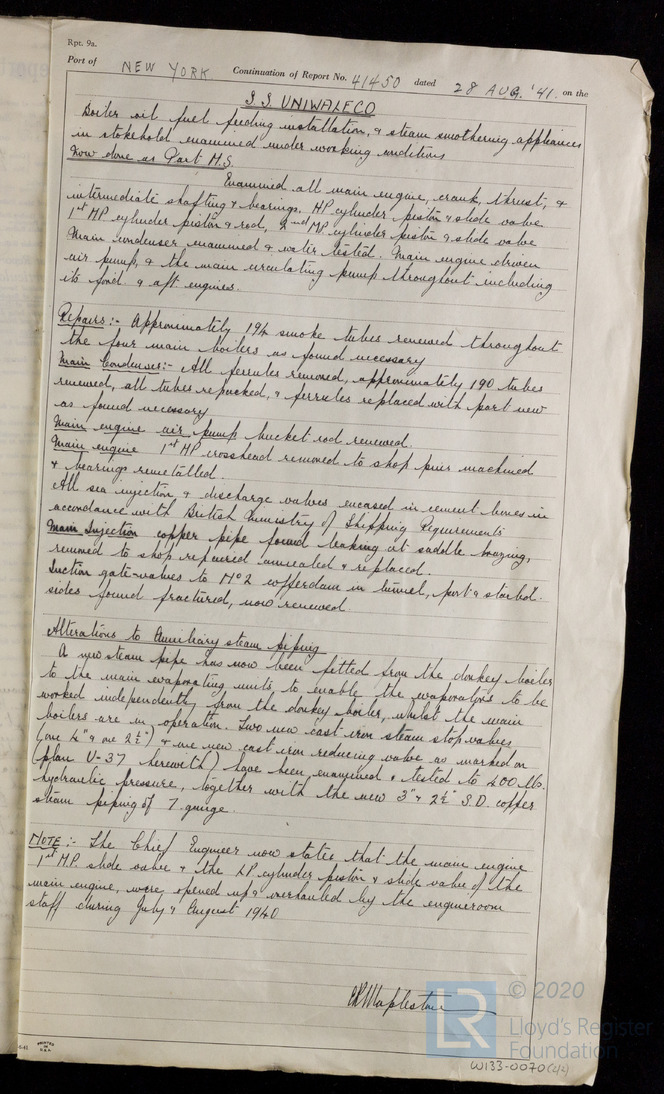 Rpt. 9a.
Port of NEW YORK Continuation of Report No. 41450 dated 28 AUG. '41. on the
S.S. UNIWALECO
Boiler oil fuel feeding installation, & steam smothering appliances
in stokehold examined under working conditions
Now done as Part M.S.
Examined all main engine, crank, thrust, &
intermediate shafting & bearings. HP cylinder piston & slide valve
1st MP cylinder piston & rod, 2nd MP cylinder piston & slide valve
Main condenser examined & water tested. Main engine driven
air pump, & the main circulating pump throughout including
its ford. & aft engines.
Repairs:- Approximately 194 smoke tubes renewed throughout
the four main boilers as found necessary
Main Condenser:- All ferrules removed, approximately 190 tubes
renewed, all tubes repacked, & ferrules replaced with part new
as found necessary
Main engine air pump bucket rod renewed.
Main engine 1st MP crosshead removed to shop pins machined
& bearings remetalled.
All sea injection & discharge valves encased in cement boxes in
accordance with British Ministry of Shipping Requirements
Main Injection copper pipe found leaking at saddle brazing,
removed to shop repaired annealed & replaced
Suction gate-valves to No 2 cofferdam in tunnel, port & starbd.
sides found fractured, now renewed
Alterations to Auxiliary steam piping
A new steam pipe has now been fitted from the donkey boiler
to the main evaporating units, to enable the evaporators to be
worked independently from the donkey boiler, whilst the main
boilers are in operation. Two new cast iron steam stop valves
(one 4" & one 2½") & one new cast iron reducing valve as marked on
(plan U-37 herewith) have been examined & tested to 400 lbs.
hydraulic pressure, together with the new 3" & 2½" S.D. copper
steam piping of 7 gauge.
NOTE:- The Chief Engineer now states that the main engine
1st MP slide valve & the LP cylinder piston & slide valve of the
main engine, were opened up & overhauled by the engineroom
staff during July & August 1940
Maplestone
© 2020
LR
Lloyd's Register
Foundation
W133-0070(4/4)
-5-41
PRINTED
IN
U.S.A.